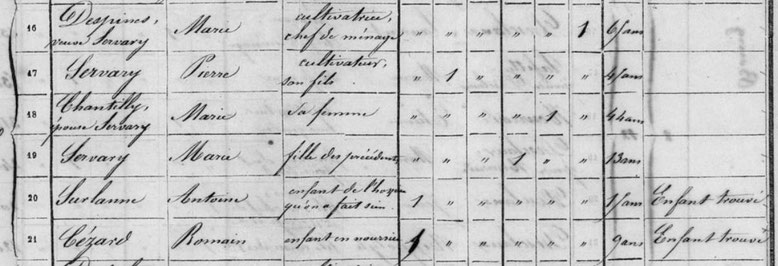 16 Despines, veuve Servary Marie cultivatrice, chef de ménage " " " " " 1 65 ans
17 Servary Pierre cultivateur, son fils " 1 " " " " 45 ans
18 Chantilly, épouse Servary Marie sa femme " " " " 1 " 44 ans
19 Servary Marie fille des précédents " " " 1 " " 13 ans
20 Surlanne Antoine enfant de l'hospice qu'on a fait 1 " " " " " 15 ans Enfant trouvé
21 Cézard Romain enfant en nourrice 1 " " " " " 9 ans Enfant trouvé